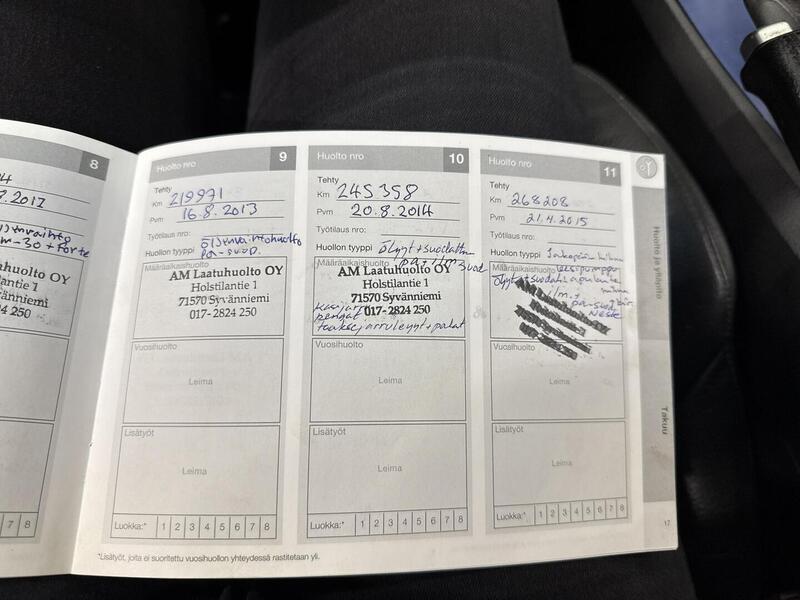 8
14
8.2012
öljynvaihto
m-30 + Forte
tuhuolto OY
lantie 1
väniemi
4 250
7 8
Huolto nro 9
Tehty
Km 219971
Pvm 16.8.2013
Työtilaus nro:
Huollon tyyppi öljynvaihtohuolto
pa-suod.
Määräaikaishuolto
AM Laatuhuolto OY
Holstilantie 1
71570 Syvänniemi
017- 2824 250
Vuosihuolto
Leima
Lisätyöt
Leima
Luokka:* 1 2 3 4 5 6 7 8
Huolto nro 10
Tehty
Km 245358
Pvm 20.8.2014
Työtilaus nro:
Huollon tyyppi öljyt+suodatin
pa+ilm suod
Määräaikaishuolto
AM Laatuhuolto OY
Holstilantie 1
71570 Syvänniemi
017- 2824 250
taakse jarrulevyt+palat
Vuosihuolto
Leima
Lisätyöt
Leima
Luokka:* 1 2 3 4 5 6 7 8
Huolto nro 11
Tehty
Km 268208
Pvm 21.4.2015
Työtilaus nro:
Huollon tyyppi Jakopään hihna
vesipumppu
Määräaikaishuolto
öljyt+suodat. apulaite
hihna
ilm.
pa-suod.
Neste
Vuosihuolto
Leima
Lisätyöt
Leima
Luokka:* 1 2 3 4 5 6 7 8
*Lisätyöt, joita ei suoritettu vuosihuollon yhteydessä rastitetaan yli.
Huolto ja ylläpito
Takuu
17